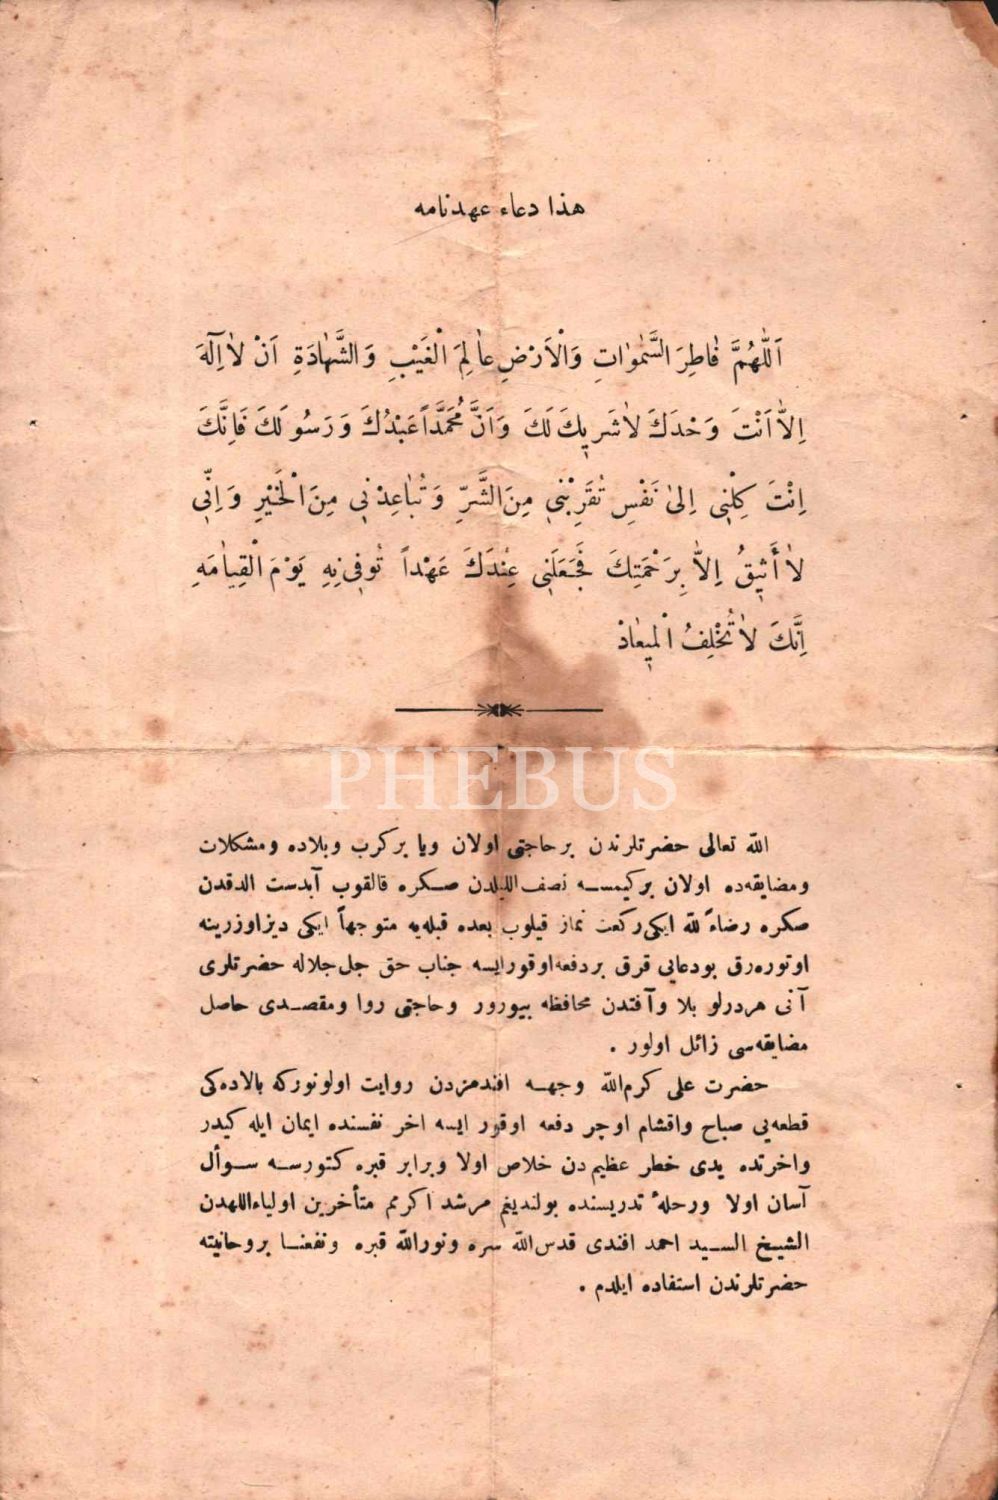 هذا دعاء عهدنامه
اَللّٰهُمَّ فَاطِرَ السَّمٰوَاتِ وَالْاَرْضِ عَالِمَ الْغَيْبِ وَالشَّهَادَةِ اَنْ لَا اِلٰهَ
اِلَّا اَنْتَ وَحْدَكَ لَا شَرِيكَ لَكَ وَاَنَّ مُحَمَّدًا عَبْدُكَ وَرَسُولَكَ فَاِنَّكَ
اِنْتَ كِلْنِى اِلىٰ نَفْسِ تُقَرِبْنِي مِنَ الشَّرِّ وَتُبَاعِدْنِي مِنَ الْخَيْرِ وَاِنِّي
لَا أَثِيقُ اِلَّا بِرَحْمَتِكَ فَجَعَلَنِى عِنْدَكَ عَهْدًا تُوفِىنِهِ يَوْمَ الْقِيَامَهِ
اِنَّكَ لَا تُخْلِفُ الْمِيعَادْ
PHEBUS
اللّٰه تعالى حضرتلرندن برحاجتى اولان ويا بركرب وبلاده ومشكلات
ومضايقه‌ده اولان بركيمسه نصف الليلدن صكره قالقوب آبدست الدقدن
صكره رضاءً لله ايكى ركعت نماز قيلوب بعده قبله‌يه متوجهاً ايكى ديزاوزرينه
اوتوره‌رق بودعايى قرق بردفعه اوقورايسه جناب حق جل جلاله حضرتلرى
آنى هردرلو بلا وآفتدن محافظه بيورور وحاجتى روا ومقصدى حاصل
مضايقه‌سى زائل اولور .
حضرت على كرم الله وجهه افندمزدن روايت اولونوركه بالاده‌كى
قطعه‌يى صباح واقشام اوچر دفعه اوقور ايسه اخر نفسنده ايمان ايله كيدر
واخرتده يدى خطر عظيم دن خلاص اولا وبرابر قبره كتورسه سوأل
آسان اولا ورحلهٔ تدريسنده بولنديغم مرشد اكرمم متأخرين اولياءاللهدن
الشيخ السيد احمد افندى قدس الله سره ونورالله قبره ونفعنا بروحانيته
حضرتلرندن استفاده ايلدم .